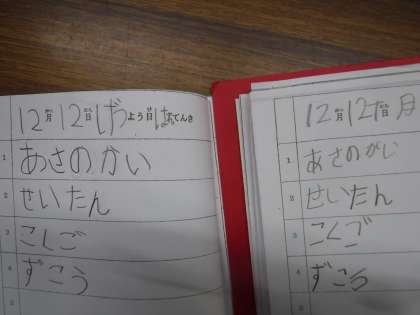 12月12日げつよう日はれてんき
1 あさのかい
2 せいたん
3 こしご
4 ずこう
5
12月12日月
1 あさのかい
2 せいたん
3 こくご
4 ずこう
5